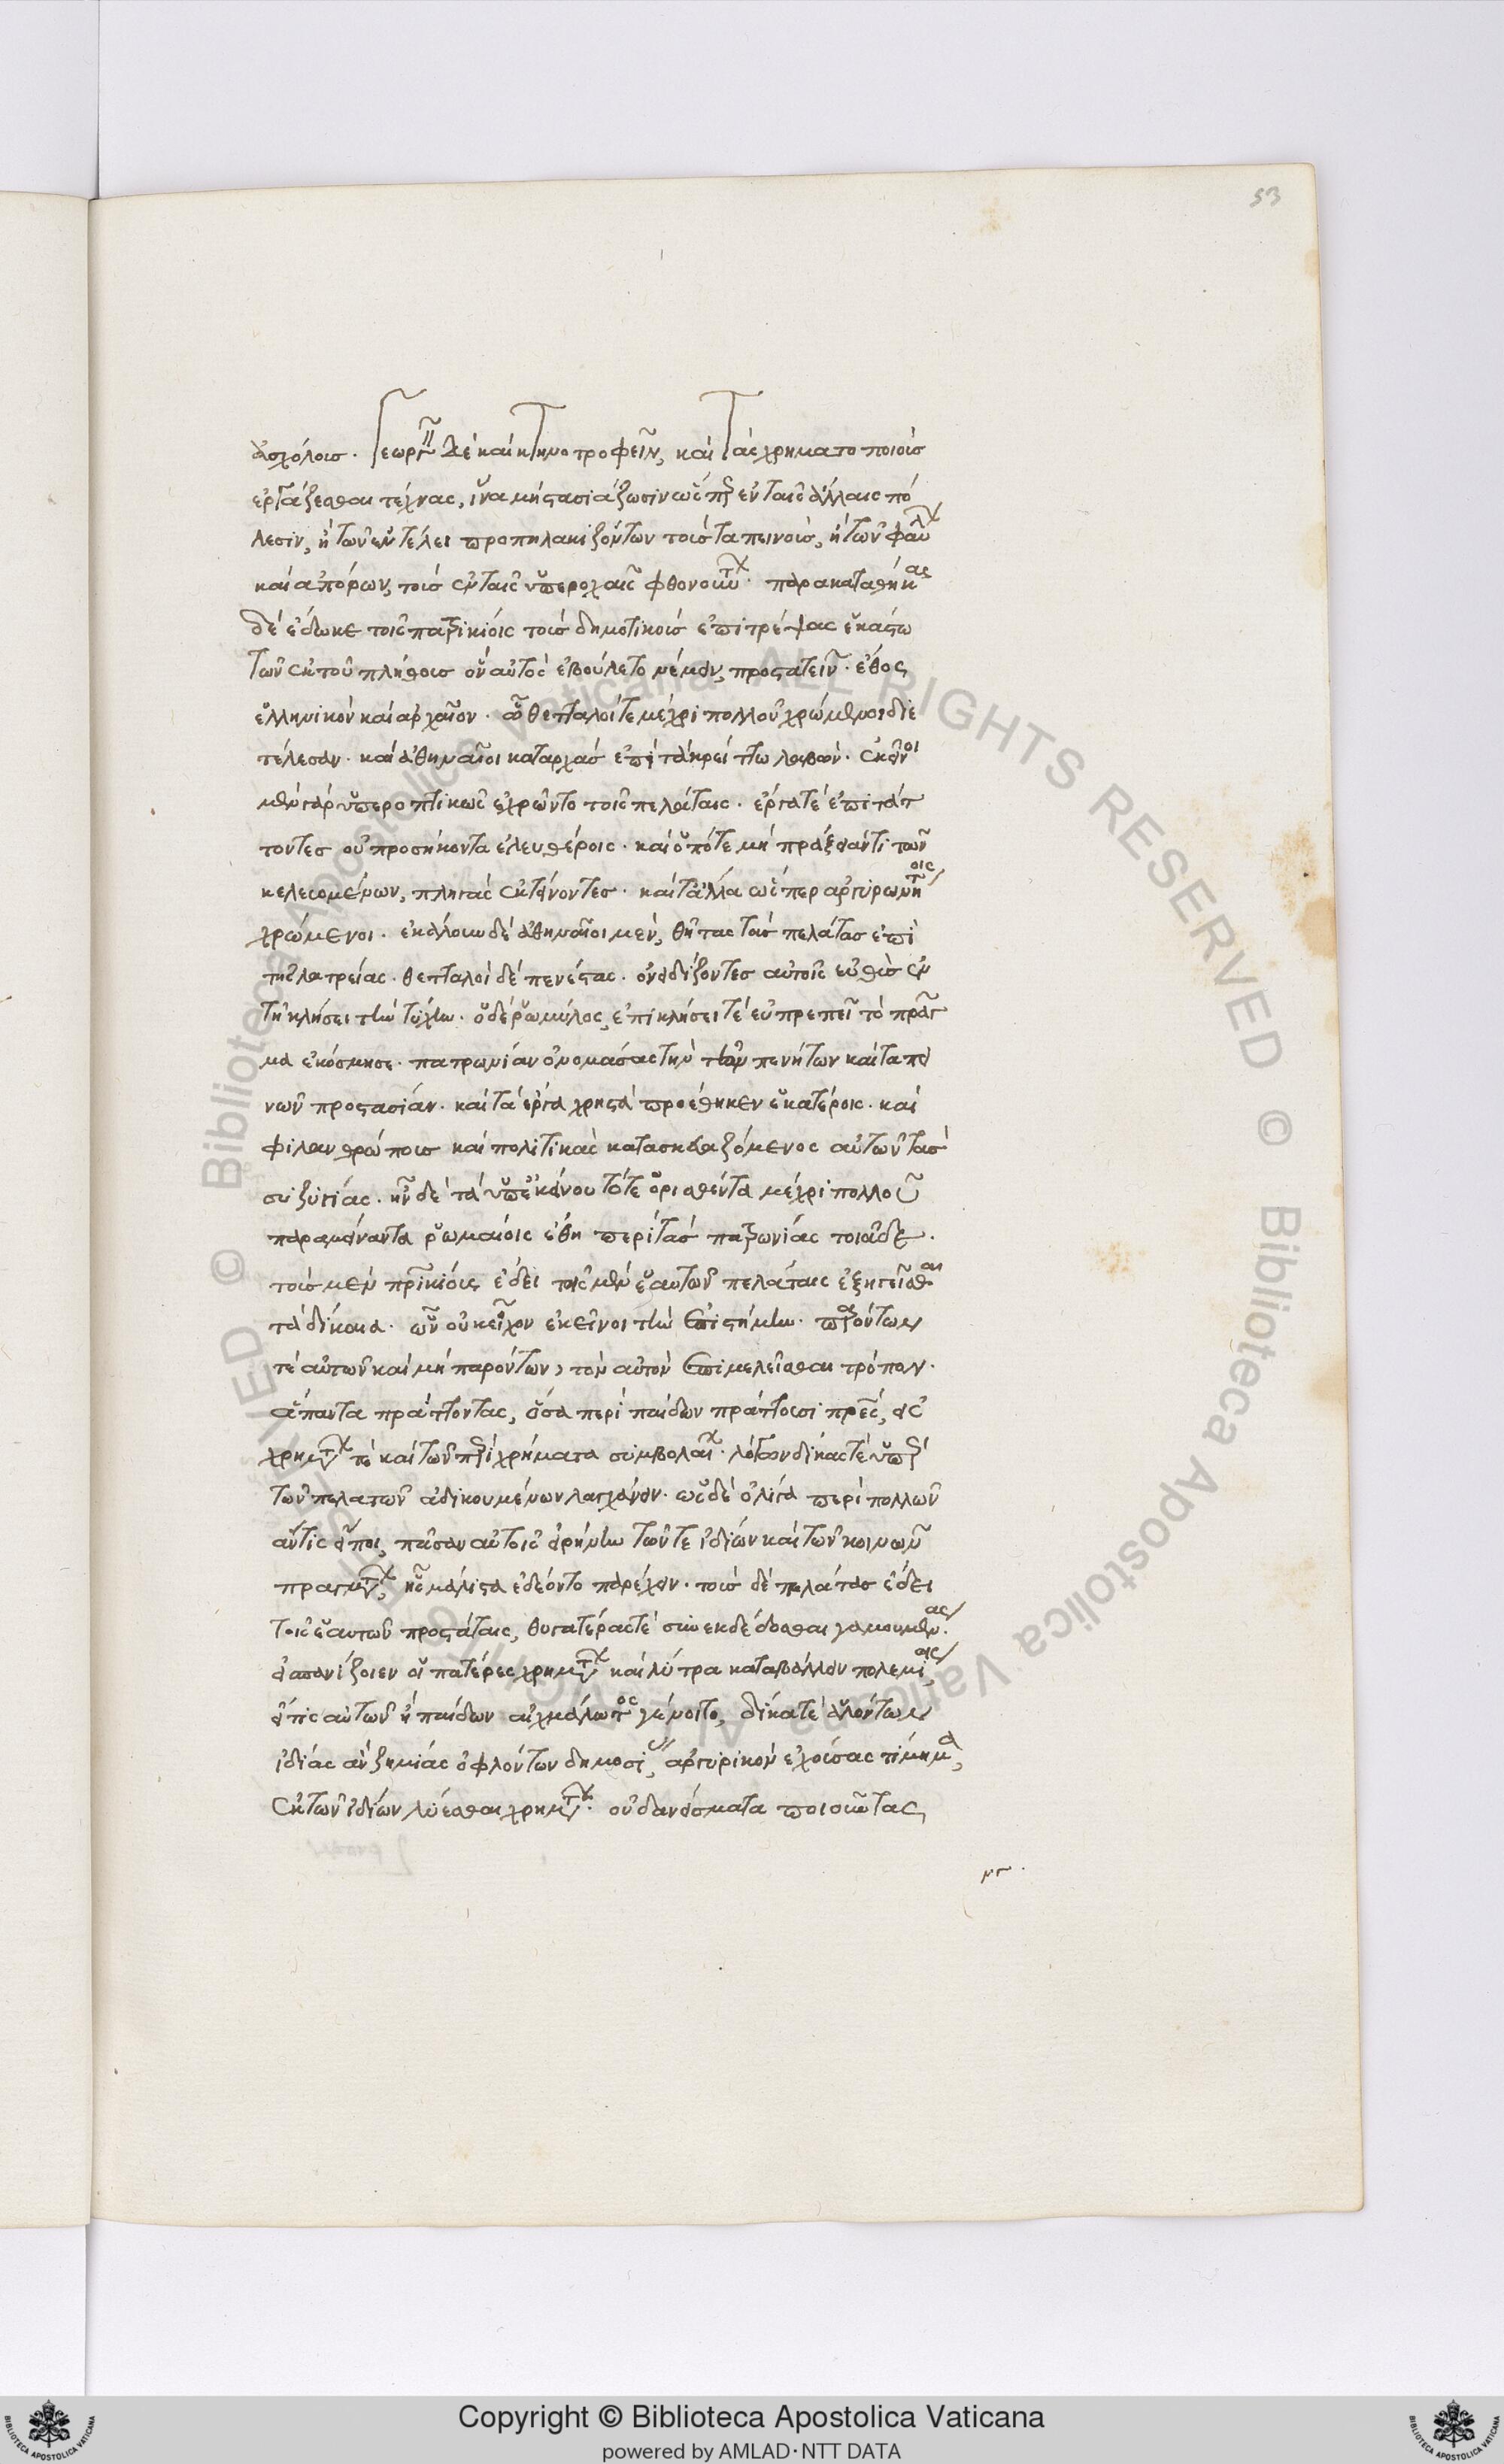 53
ἀσχόλους. Γεωργεῖν δὲ καὶ κτηνοτροφεῖν, καὶ τὰς χρηματοποιοὺς
ἐργάζεσθαι τέχνας, ἵνα μὴ στασιάζωσιν ὥσπερ ἐν ταῖς ἄλλαις πό
λεσιν, ἢ τῶν ἐν τέλει προπηλακιζόντων τοὺς ταπεινοὺς, ἢ τῶν φαύλων
καὶ ἀπόρων, τοῖς ἐν ταῖς ὑπεροχαῖς φθονούντων. παρακαταθήκας
δὲ ἔδωκε τοῖς πατρικίοις τοὺς δημοτικοὺς ἐπιτρέψας ἑκάστω
τῶν ἐκ τοῦ πλήθους ὃν αὐτὸς ἐβούλετο νέμειν, προστατεῖν. ἔθος
ἑλληνικὸν καὶ ἀρχαῖον. ᾧ θετταλοί τε μέχρι πολλοῦ χρώμενοι διε
τέλεσαν. καὶ ἀθηναῖοι καταρχὰς ἐπὶ τὰ κρείττω λαβών. ἐκεῖνοι
μὲν γὰρ ὑπεροπτικῶς ἐχρῶντο τοῖς πελάταις. ἔργα τὲ ἐπιτάτ
τοντες οὐ προσήκοντα ἐλευθέροις. καὶ ὁπότε μὴ πράξειάν τι τῶν
κελευομένων, πληγὰς ἐντείνοντες. καὶ τἆλλα ὥσπερ ἀργυρωνήτοις
χρώμενοι. ἐκάλουν δὲ ἀθηναῖοι μὲν, θῆτας τοὺς πελάτας ἐπὶ
τῆς λατρείας. θετταλοὶ δὲ πενέστας. ὀνειδίζοντες αὐτοῖς εὐθὺς ἐν
τῇ κλήσει τὴν τύχην. ὁ δὲ ῥωμύλος, ἐπικλήσει τὲ εὐπρεπεῖ τὸ πρᾶγ
μα ἐκόσμησε. πατρωνίαν ὀνομάσας τὴν τῶν πενήτων καὶ ταπει
νῶν προστασίαν. καὶ τὰ ἔργα χρηστὰ προσέθηκεν ἑκατέροις. καὶ
φιλανθρώπους καὶ πολιτικὰς κατασκευαζόμενος αὐτῶν τὰς
συζυγίας. ἦν δὲ τὰ ὑπ' ἐκείνου τότε ὁρισθέντα μέχρι πολλοῦ
παραμείναντα ῥωμαίοις ἔθη περὶ τὰς πατρωνίας τοιάδε.
τοὺς μὲν πατρικίους ἔδει τοῖς μὲν ἑαυτῶν πελάταις ἐξηγεῖσθαι
τὰ δίκαια. ὧν οὐκ εἶχον ἐκεῖνοι τὴν ἐπιστήμην. παρόντων
τὲ αὐτῶν καὶ μὴ παρόντων, τὸν αὐτὸν ἐπιμελεῖσθαι τρόπον.
ἅπαντα πράττοντας, ὅσα περὶ παίδων πράττουσι πατέρες, εἰς
χρημάτων τὲ καὶ τῶν περὶ χρήματα συμβολαίων. λόγον δίκας τὲ ὑπὲρ
τῶν πελατῶν ἀδικουμένων λαγχάνειν. ὡς δὲ ὀλίγα περὶ πολλῶν
ἄν τις εἴποι, πᾶσαν αὐτοῖς εἰρήνην τῶν τε ἰδίων καὶ τῶν κοινῶν
πραγμάτων, ἧς μάλιστα ἐδέοντο παρέχειν. τοὺς δὲ πελάτας ἔδει
τοῖς ἑαυτῶν προστάταις, θυγατέρας τὲ συνεκδίδοσθαι γαμουμένας.
εἰ σπανίζοιεν οἱ πατέρες χρημάτων καὶ λύτρα καταβάλλειν πολεμίοις,
εἴ τις αὐτῶν ἢ παίδων αἰχμάλωτος γένοιτο, δίκας τὲ ἁλόντων
ἰδίας ἂν ζημίας ὀφλόντων δημοσίας, ἀργυρικὸν ἐχούσας τίμημα,
ἐκ τῶν ἰδίων λύεσθαι χρημάτων. οὐ δανείσματα ποιοῦντας,
μγ.
© Biblioteca Apostolica Vaticana ALL RIGHTS RESERVED
Copyright © Biblioteca Apostolica Vaticana
powered by AMLAD·NTT DATA